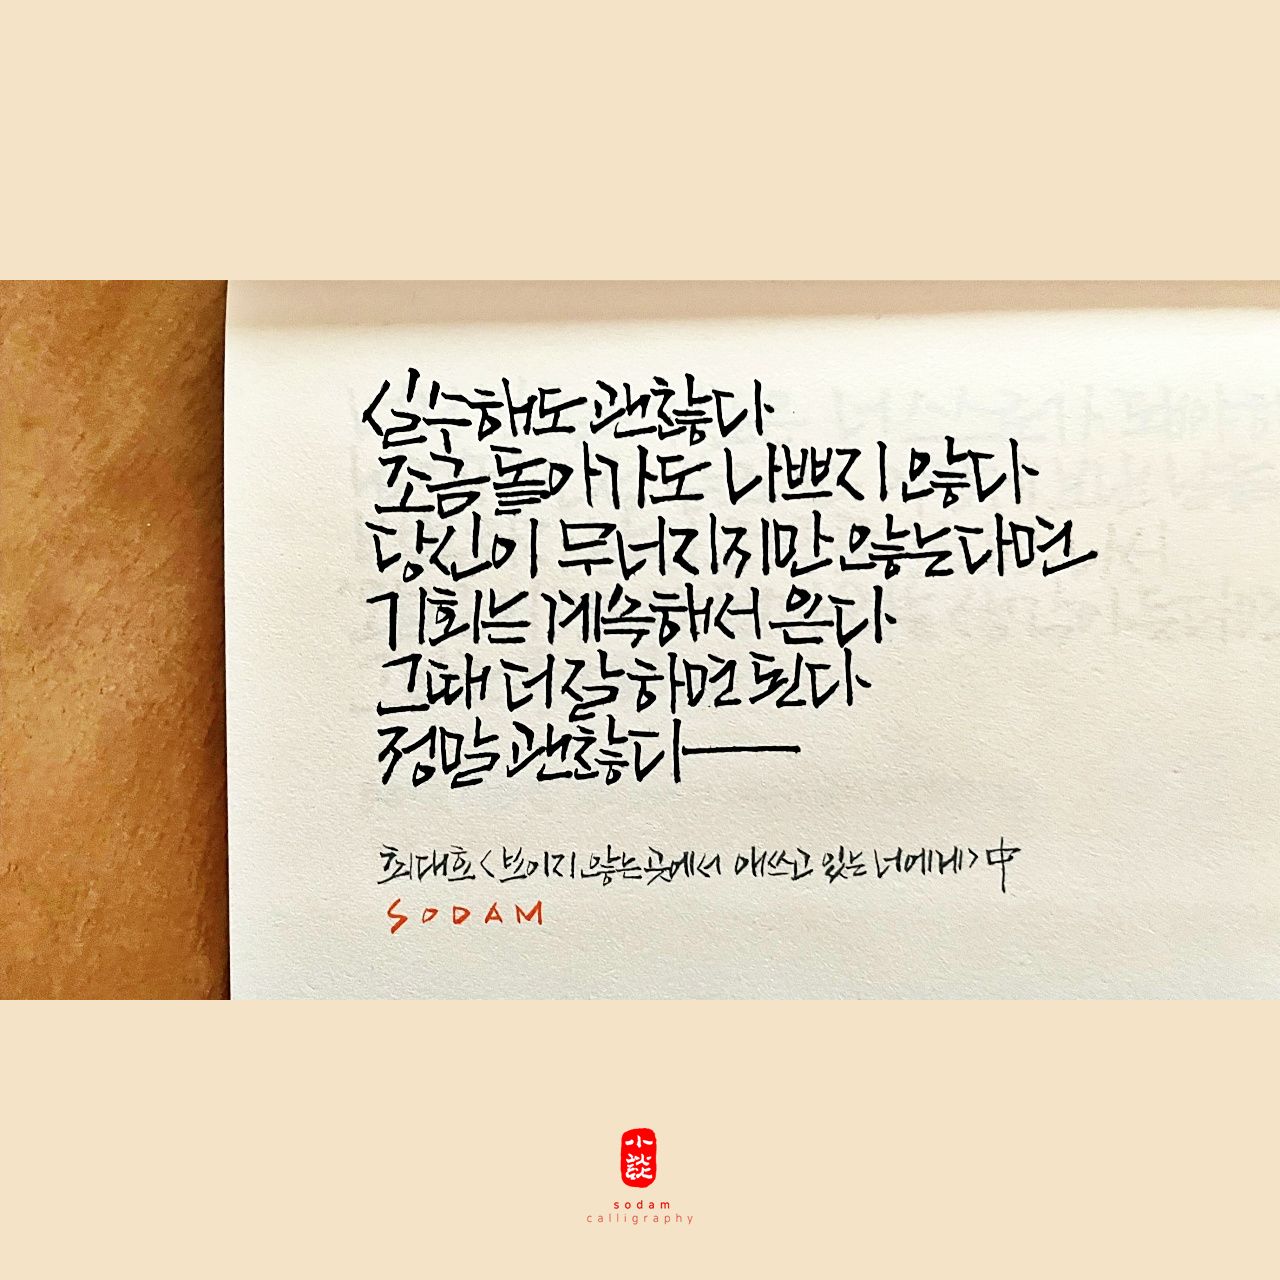 실수해도 괜찮다
조금 돌아가도 나쁘지 않다
당신이 무너지지만 않는다면
기회는 계속해서 온다
그때 더 잘하면 된다
정말 괜찮다
최대호 <보이지 않는 곳에서 애쓰고 있는 너에게> 中
SODAM
小談
sodam
calligraphy